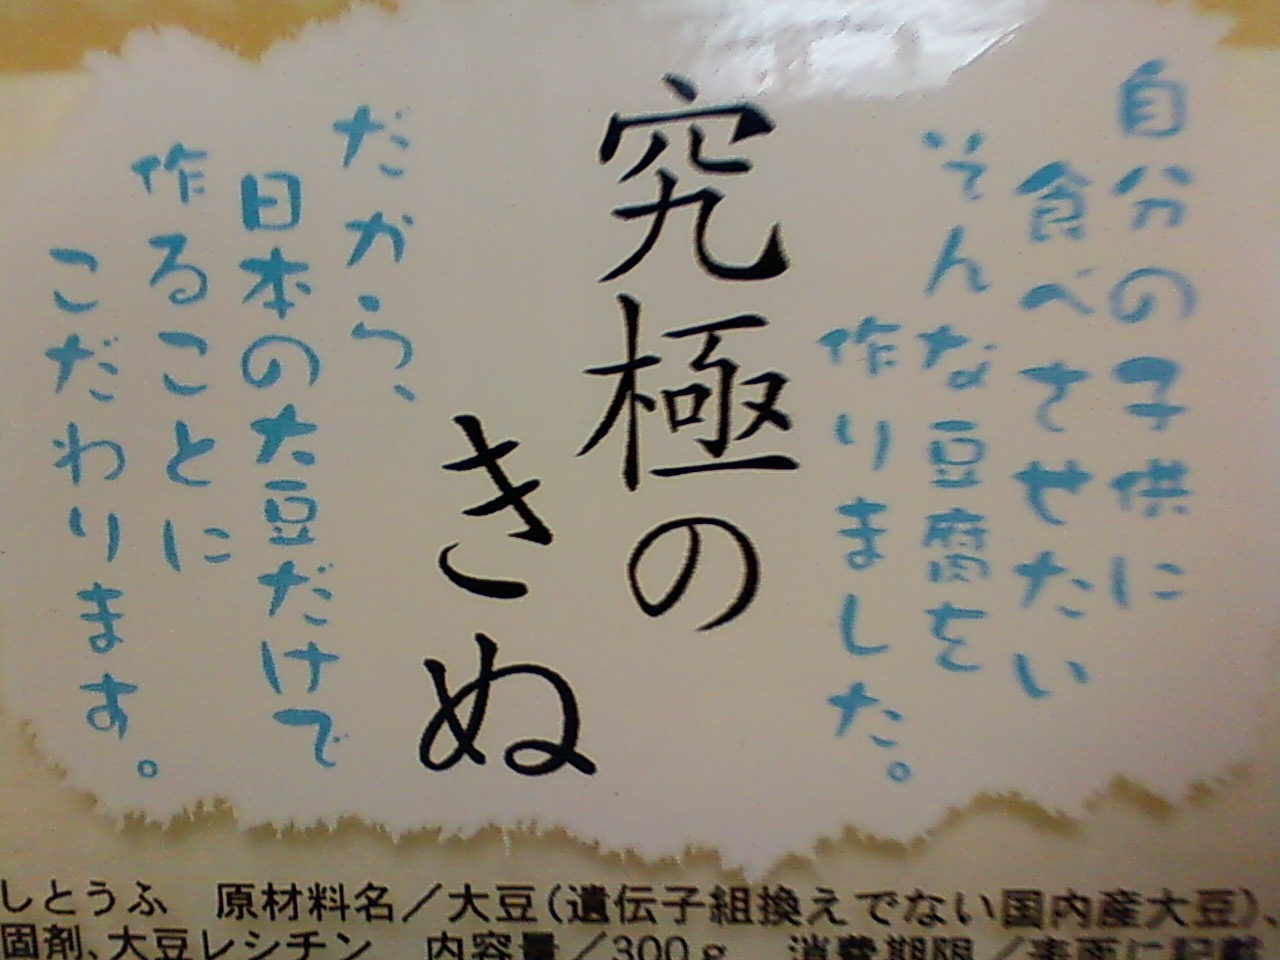 自分の子供に
食べさせたい
そんな豆腐を
作りました。
究極の
きぬ
だから、
日本の大豆だけで
作ることに
こだわります。
しとうふ 原材料名／大豆(遺伝子組換えでない国内産大豆)、
固剤、大豆レシチン 内容量／300g 消費期限／表面に記載